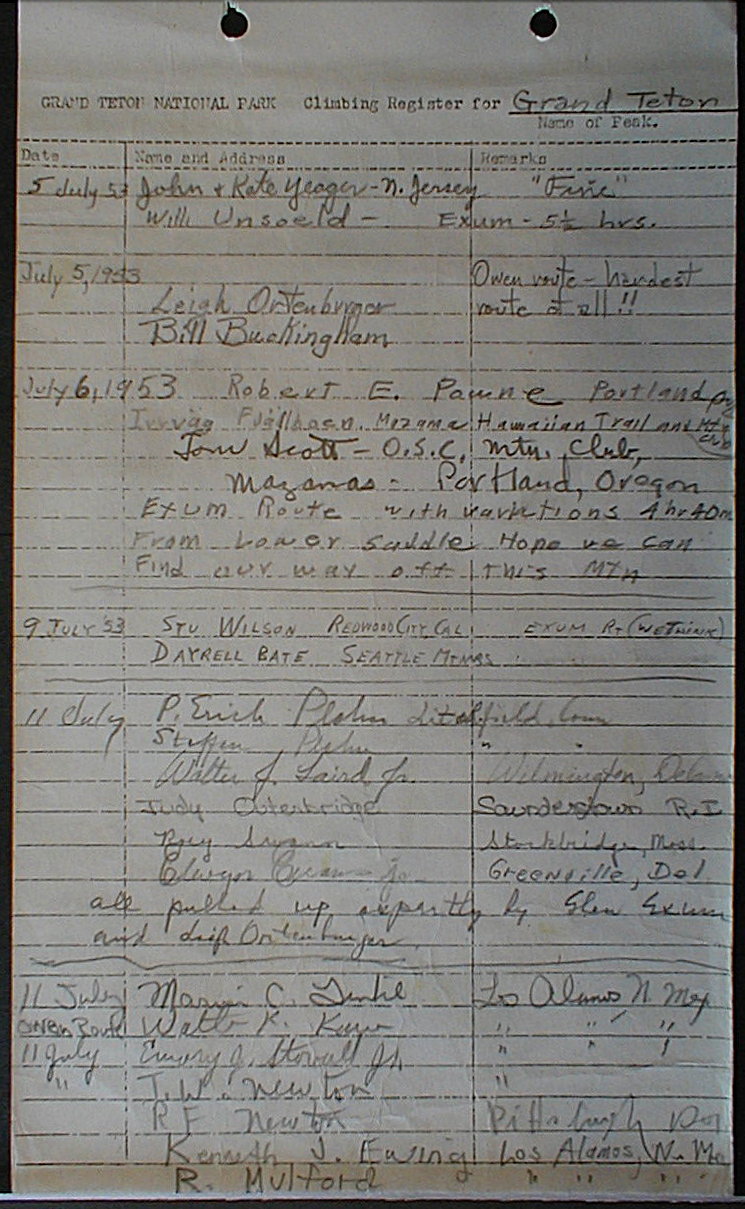 GRAND TETON NATIONAL PARK Climbing Register for Grand Teton
Name of Peak.
Date Name and Address Remarks
5 July 53 John & Kate Yeager - N. Jersey "Fine"
Willi Unsoeld - Exum - 5½ hrs.
July 5, 1953 Owen route - hardest
Leigh Ortenburger route of all!!
Bill Buckingham
July 6, 1953 Robert E. Portland
Mazama Hawaiian Trail and Mtn
Club
Tom Scott - O.S.C. Mtn. Club,
Mazamas - Portland, Oregon
Exum Route with variations 4 hr 40m
From Lower Saddle Hope we can
Find our way off this Mtn
9 JULY '53 STU WILSON REDWOOD CITY, CAL. EXUM RT (WE THINK)
DAYRELL BATE SEATTLE MTNRS
11 July P. Erich Plohn Litchfield, Conn
Plohn " "
Walter J. Laird Jr. Wilmington, Delaw
Judy Outerbridge Saunderstown R.I.
Stockbridge, Mass.
Greenville, Del.
all pulled up expertly by Glen Exum
and Leigh Ortenburger
11 July C. Los Alamos N. Mex
Owen Route K. " " "
11 July Emory J. Stovall Jr. " " "
" J. W. Newton "
R F Newton Pittsburgh
Kenneth J. Ewing Los Alamos, N. Me
R. Mulford " " " "